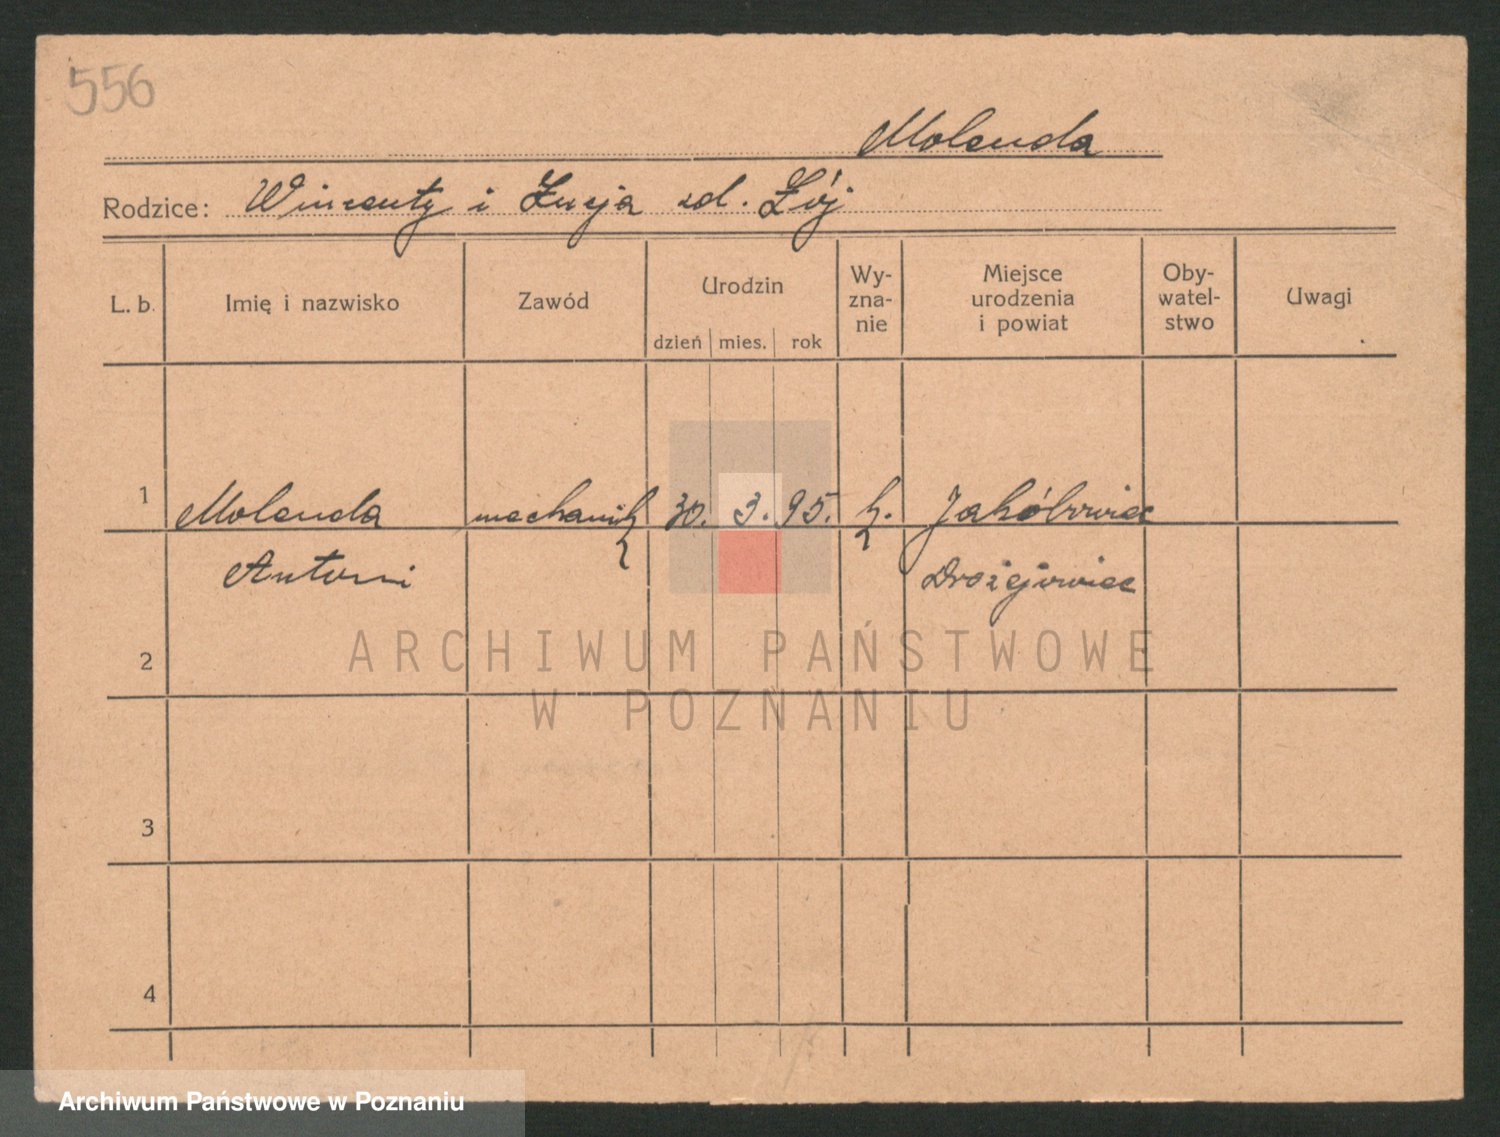 556
Molenda
Rodzice: Wincenty i Łucja zd. Łój
L. b. Imię i nazwisko Zawód Urodzin Wy-zna-nie Miejsce urodzenia i powiat Oby-watel-stwo Uwagi
dzień mies. rok
1 Molenda mechanik 30. 3. 95. k.
Antoni
2
3
4
ARCHIWUM PAŃSTWOWE
W POZNANIU
Archiwum Państwowe w Poznaniu